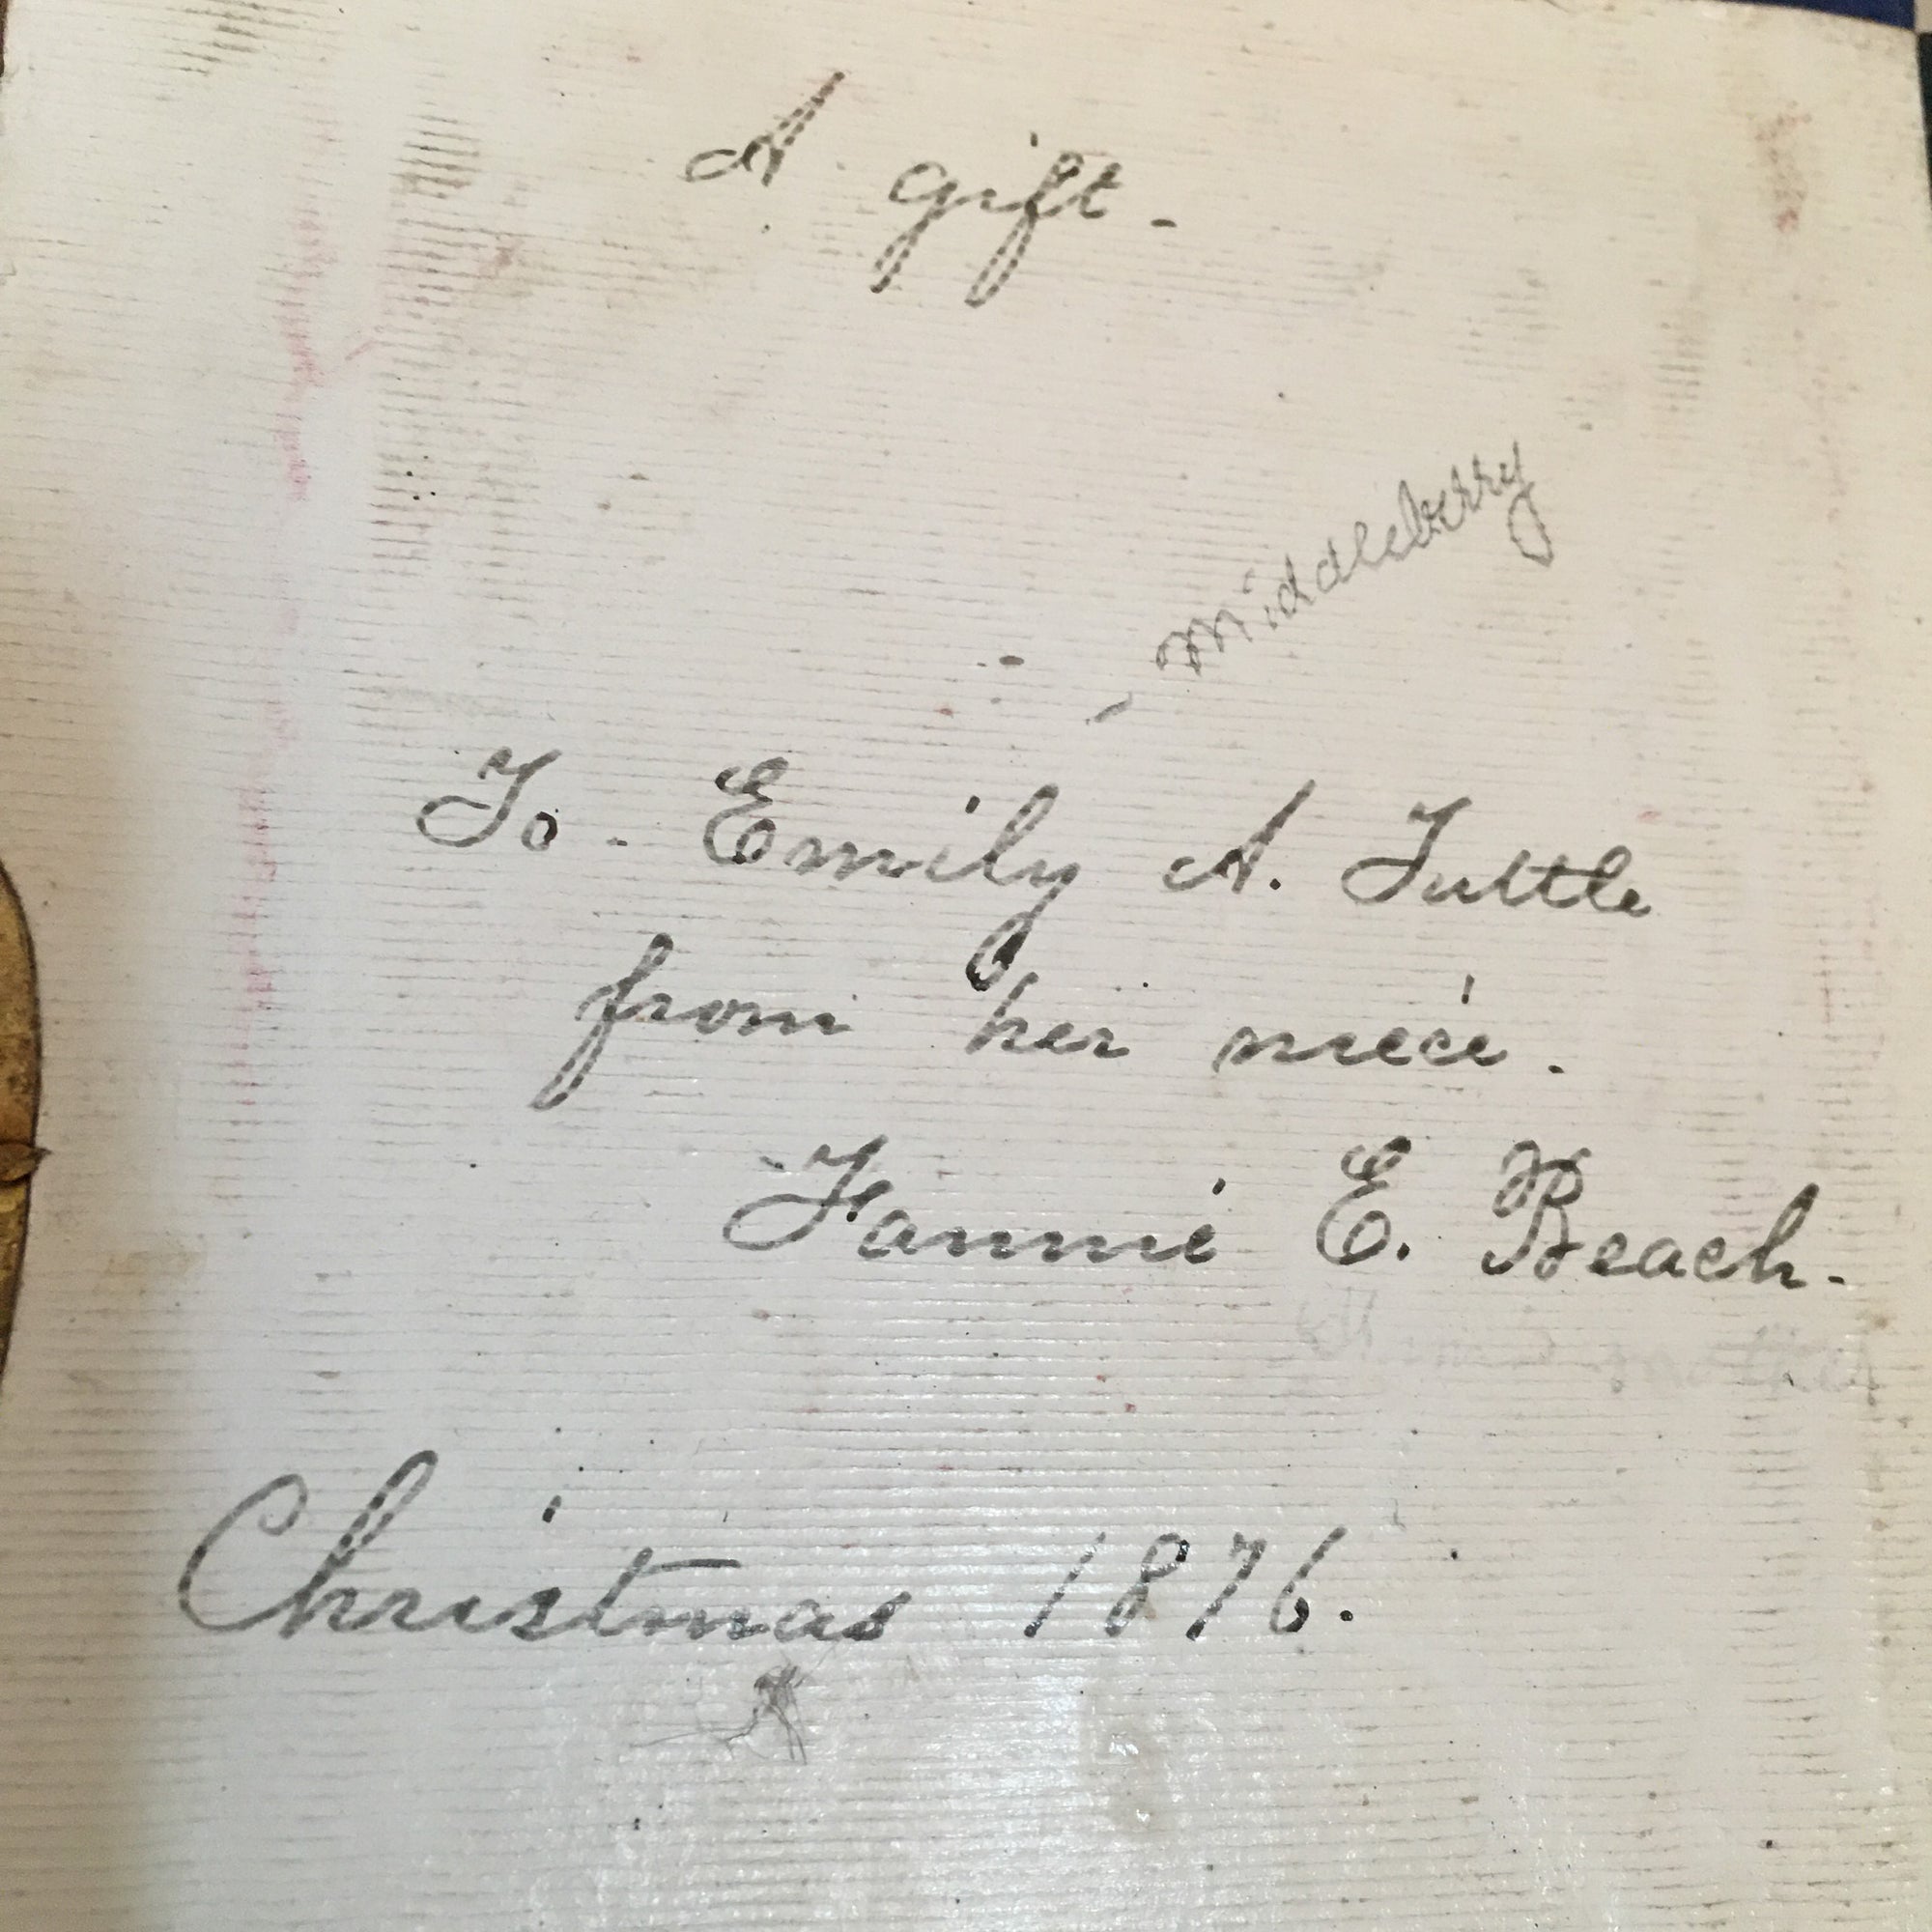 A gift -
- Middleberry
To - Emily A. Tuttle
from her niece.
Fannie E. Beach.
Christmas 1876.